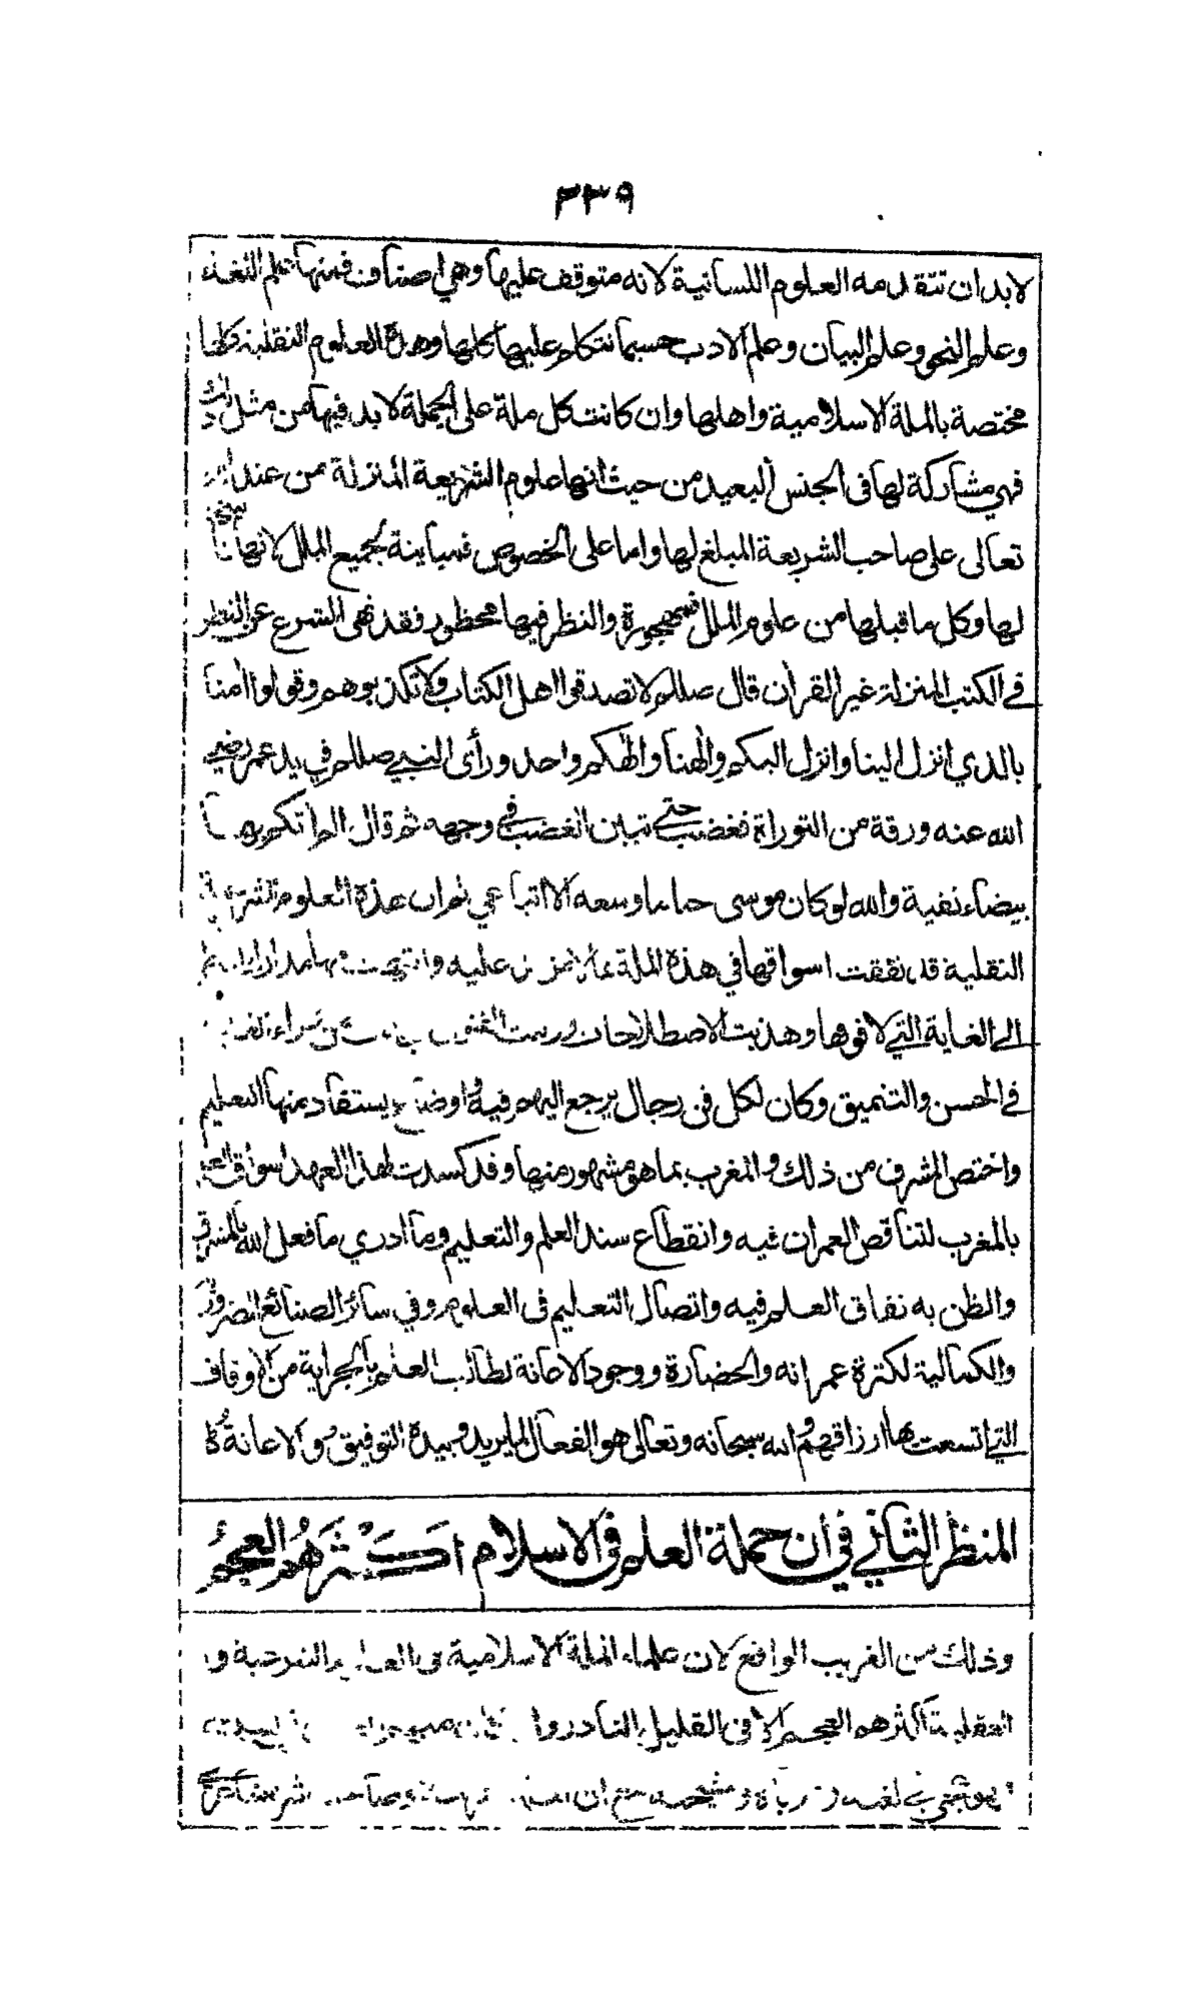 ٣٣٩
لابد ان تتقدمه العلوم اللسانية لانه متوقف عليها وهي اصناف فمنها علم اللغة
وعلم النحو وعلم البيان وعلم الادب حسبما نتكلم عليها كلها وهذه العلوم النقلية كلها
مختصة بالملة الاسلامية واهلها وان كانت كل ملة على الجملة لا بد فيها من مثل ذلك
فهي مشاركة لها فى الجنس البعيد من حيث انها علوم الشريعة المنزلة من عند الله
تعالى على صاحب الشريعة المبلغ لها واما على الخصوص فمباينة لجميع الملل لانها ناسخة
لها وكل ما قبلها من علوم الملل فمهجورة والنظر فيها محظور فقد نهى الشرع عن النظر
في الكتب المنزلة غير القران قال صللم لا تصدقوا اهل الكتاب ولا تكذبوهم وقولوا امنا
بالذي انزل الينا وانزل اليكم والهنا والهكم واحد ورأى النبي صللم في يد عمر رضي
الله عنه ورقة من التوراة فغضب حتى تبين الغضب في وجهه ثم قال الم اتكم بها
بيضاء نقية والله لو كان موسى حيا ما وسعه الا اتباعي ثم ان هذه العلوم الشرعية
النقلية قد نفقت اسواقها في هذه الملة بما لا مزيد عليه وانتهت
الى الغاية التي لا فوقها وهذبت الاصطلاحات ورتبت الفنون
في الحسن والتنميق وكان لكل فن رجال يرجع اليهم فيه واوضاع يستفاد منها التعليم
واختص المشرق من ذلك والمغرب بما هو مشهور منها وقد كسدت لهذا العهد اسواق العلم
بالمغرب لتناقص العمران فيه وانقطاع سند العلم والتعليم وما ادري ما فعل الله بالمشرق
والظن به نفاق العلم فيه واتصال التعليم فى العلوم وفي سائر الصنائع الضرورية
والكمالية لكثرة عمرانه والحضارة ووجود الاعانة لطالب العلم بالجراية من الاوقاف
التي اتسعت بها ارزاقهم والله سبحانه وتعالى هو الفعال لما يريد وبيده التوفيق والاعانة
المنظر الثاني في ان حملة العلم فى الاسلام اكثرهم العجم
وذلك من الغريب الواقع لان علماء الملة الاسلامية فى العلوم الشرعية و
العقلية اكثرهم العجم الا فى القليل النادر وان كان منهم
فهو عجمي في لغته و ومشيخته مع ان الملة شريعتها